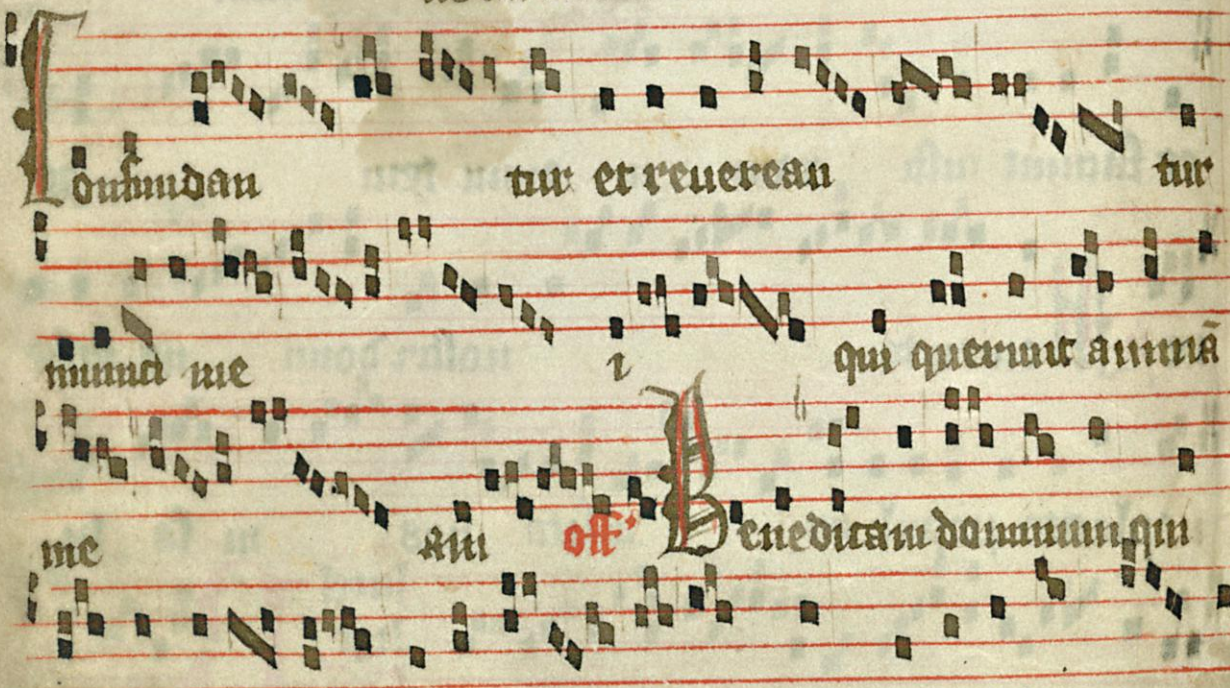 Confundan tur et reuerean tur
inimici me i qui querunt animā
me am off' Benedicam dominum qui